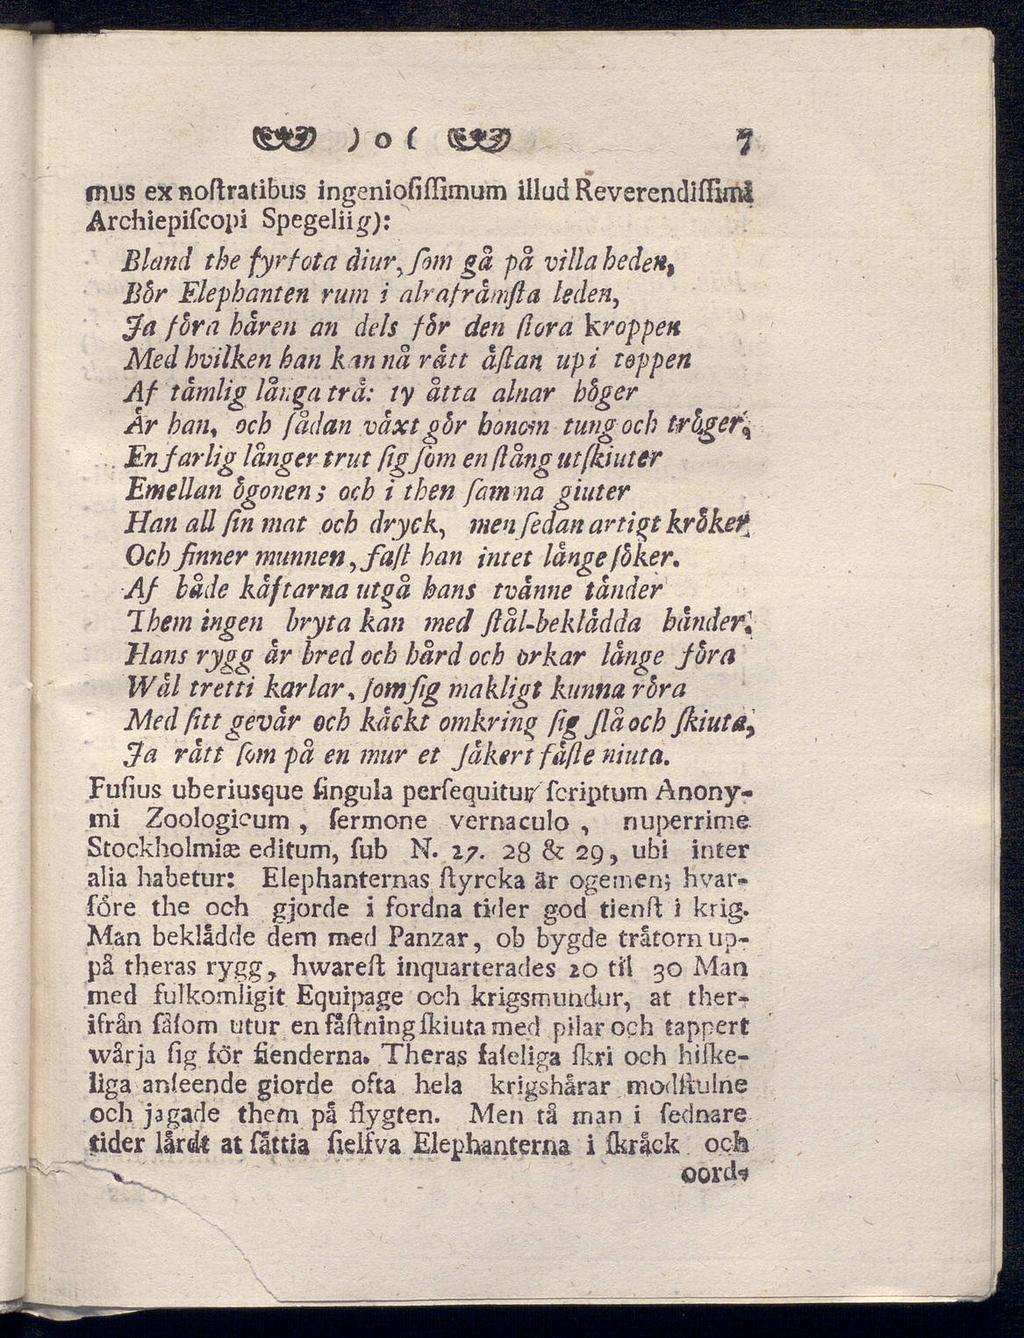 ) o ( 7
mus ex noſtratibus ingenioſiſſimum illud Reverendiſſimi
Archiepiſcopi Spegelii g):
Bland the fyrfota diur, ſom gå på villa heden,
Bör Elephanten rum i alrafrämſta leden,
Ja föra hären an dels för den ſtora kroppen
Med hvilken han kan nå rått åſtan up i toppen
Af tämlig långa trå: ty åtta alnar höger
Är han, och ſådan våxt gör honom tung och tröger,
En farlig långer trut ſig ſom en ſtång utſkiuter
Emellan ögonen; och i then ſamma giuter
Han all ſin mat och dryck, men ſedan artigt kröker,
Och finner munnen, faſt han intet långe ſöker.
Af både kåftarna utgå hans tvånne tånder
Them ingen bryta kan med ſtål-beklådda hånder;
Hans rygg år bred och hård och orkar långe föra
Wål tretti karlar, ſom ſig makligt kunna röra
Med ſitt gevår och kåckt omkring ſig ſlå och ſkiuta,
Ja rått ſom på en mur et ſåkert fåſte niuta.
Fuſius uberiusque ſingula perſequitur ſcriptum Anony-
mi Zoologicum, ſermone vernaculo, nuperrime
Stockholmiæ editum, ſub N. 27. 28 & 29, ubi inter
alia habetur: Elephanternas ſtyrcka är ogemen; hvar-
före the och gjorde i fordna tider god tienſt i krig.
Man beklådde dem med Panzar, ob bygde tråtorn up-
på theras rygg, hwareſt inquarterades 20 til 30 Man
med fulkomligit Equipage och krigsmundur, at ther-
ifrån ſåſom utur en fåſtning ſkiuta med pilar och tappert
wårja ſig för fienderna. Theras faſeliga ſkri och hiſke-
liga anſeende giorde ofta hela krigshårar modſtulne
och jagade them på flygten. Men tå man i ſednare
tider lårdt at ſåttia ſielfva Elephanterna i ſkråck och
oord-